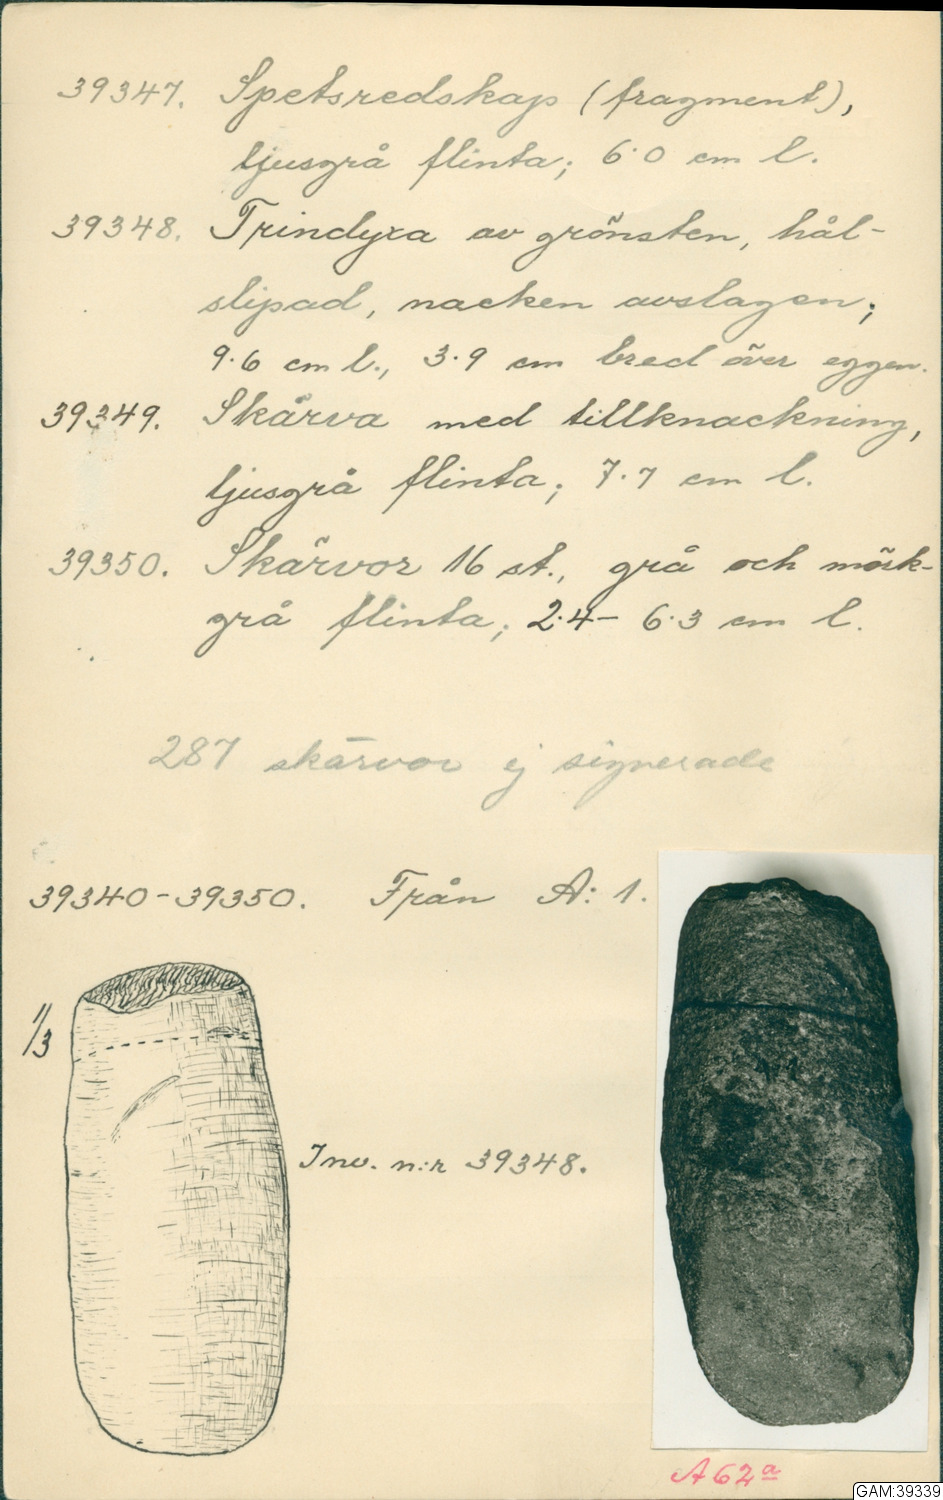 39347. Spetsredskap (fragment),
ljusgrå flinta; 6.0 cm l.
39348. Trindyxa av grönsten, hål-
slipad, nacken avslagen;
9.6 cm l., 3.9 cm bred över eggen.
39349. Skärva med tillknackning,
ljusgrå flinta; 7.7 cm l.
39350. Skärvor 16 st., grå och mörk-
grå flinta; 2.4– 6.3 cm l.
287 skärvor ej signerade
39340-39350. Från A: 1.
1/3
Inv. n:r 39348.
A 62a
GAM:39339